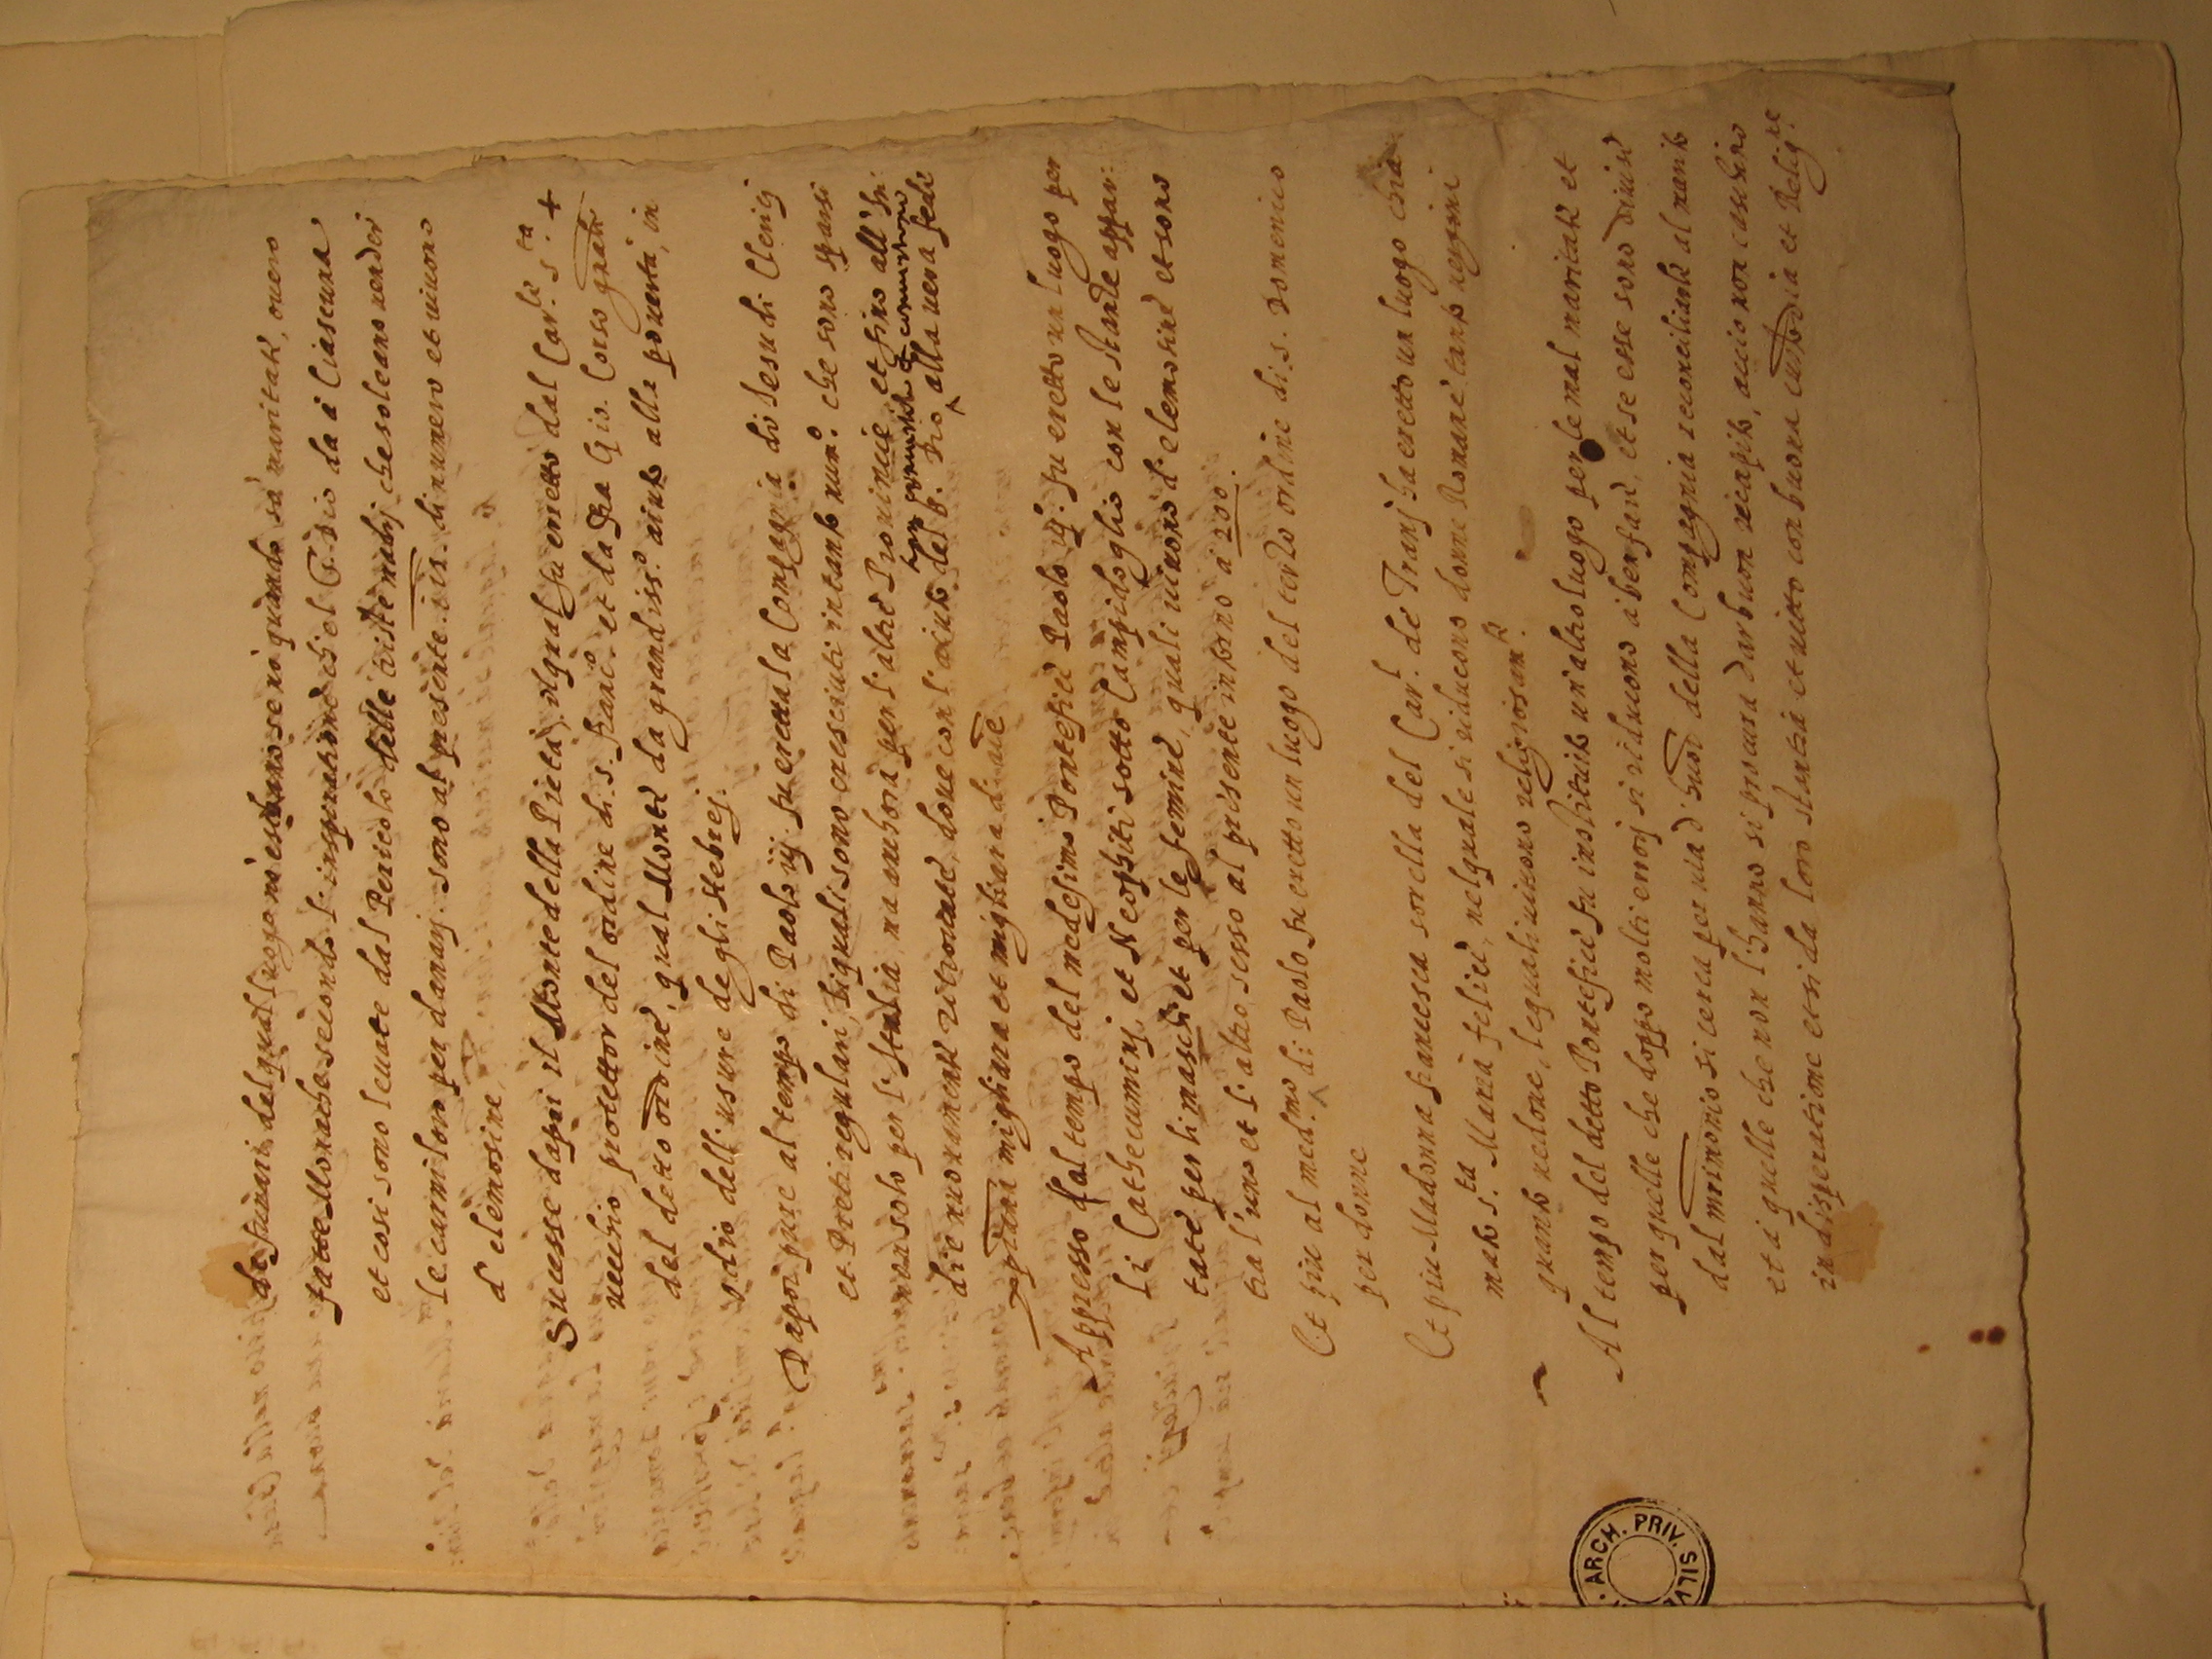 de furari del qual luogo no escano se no quando sa maritate, overo
fatte Monache secondo l'inspiratione ch'el S. Dio da a Ciascuna
et cosi sono levate dal Pericolo delle triste madrj che soleano vender
le carni loro per danarj. sono al presente. in numero et vivono
d'elemosine,
Successe dapoi il Monte della Pietà, il qual fu erretto dal Car.le S.ta +
vecchio protettor del ordine di s. Franc.o et da fra Gio. Corso
del detto ordine, qual Monte da grandiss.o aiuto alla povertà, in
odio dell'usure degli Hebrej.
Dapoi pure al tempo di Paolo iij. fu eretta la Compagnia di Jesu di Clerici
et Preti regulari, li quali sono cresciuti in tanto num.o che sono sparsi
non solo per l'Italia ma anchora per l'altre Provincie et fino all'In:
die nuovamente ritrovate, dove con l'aiuto del S. Dio alla vera fede
migliara et migliara di
Appresso al tempo del medesimo Pontefice Paolo iij. fu eretto un luogo per
li Cathecuminj, et Neophiti sotto Campidoglio con le stanze appar:
tate per li maschi et per le femine, quali vivono d'elemosine et sono
tra l'uno et l'altro sesso al presente intorno a 200.
Et piu al med.mo di Paolo fu eretto un luogo del terzo ordine di .s. Domenico
per donne
Et piu Madonna Francesca sorella del Car.l de Tranj ha eretto un luogo chia
mato S.ta Maria felice, nel quale si riducono donne Romane tanto vergini
quanto vedove, le quali vivono religiosam.te
Al tempo del detto Pontefice fu instituito un'altro luogo per le mal maritate et
per quelle che doppo molti errorj si riducono a ben fare, et se esse sono divise
dal matrimonio si cerca per via d' della Compagnia reconciliarle al marito
et a quelle che non l'hanno si procura dar buon recapito, accio non caschino
in disperatione et si da loro stantia et vitto con buona custodia et Relig.ne
ARCH. PRIV.